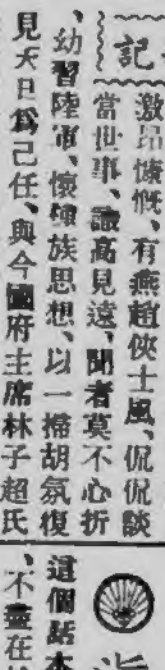 記
激昂慷慨、有燕趙俠士風、侃侃談
當世事、識高見遠、聞者莫不心折
、幼習陸軍、懷種族思想、以一掃胡氛復
見天日爲己任、與今國府主席林子超氏
這個話本
、不盡在